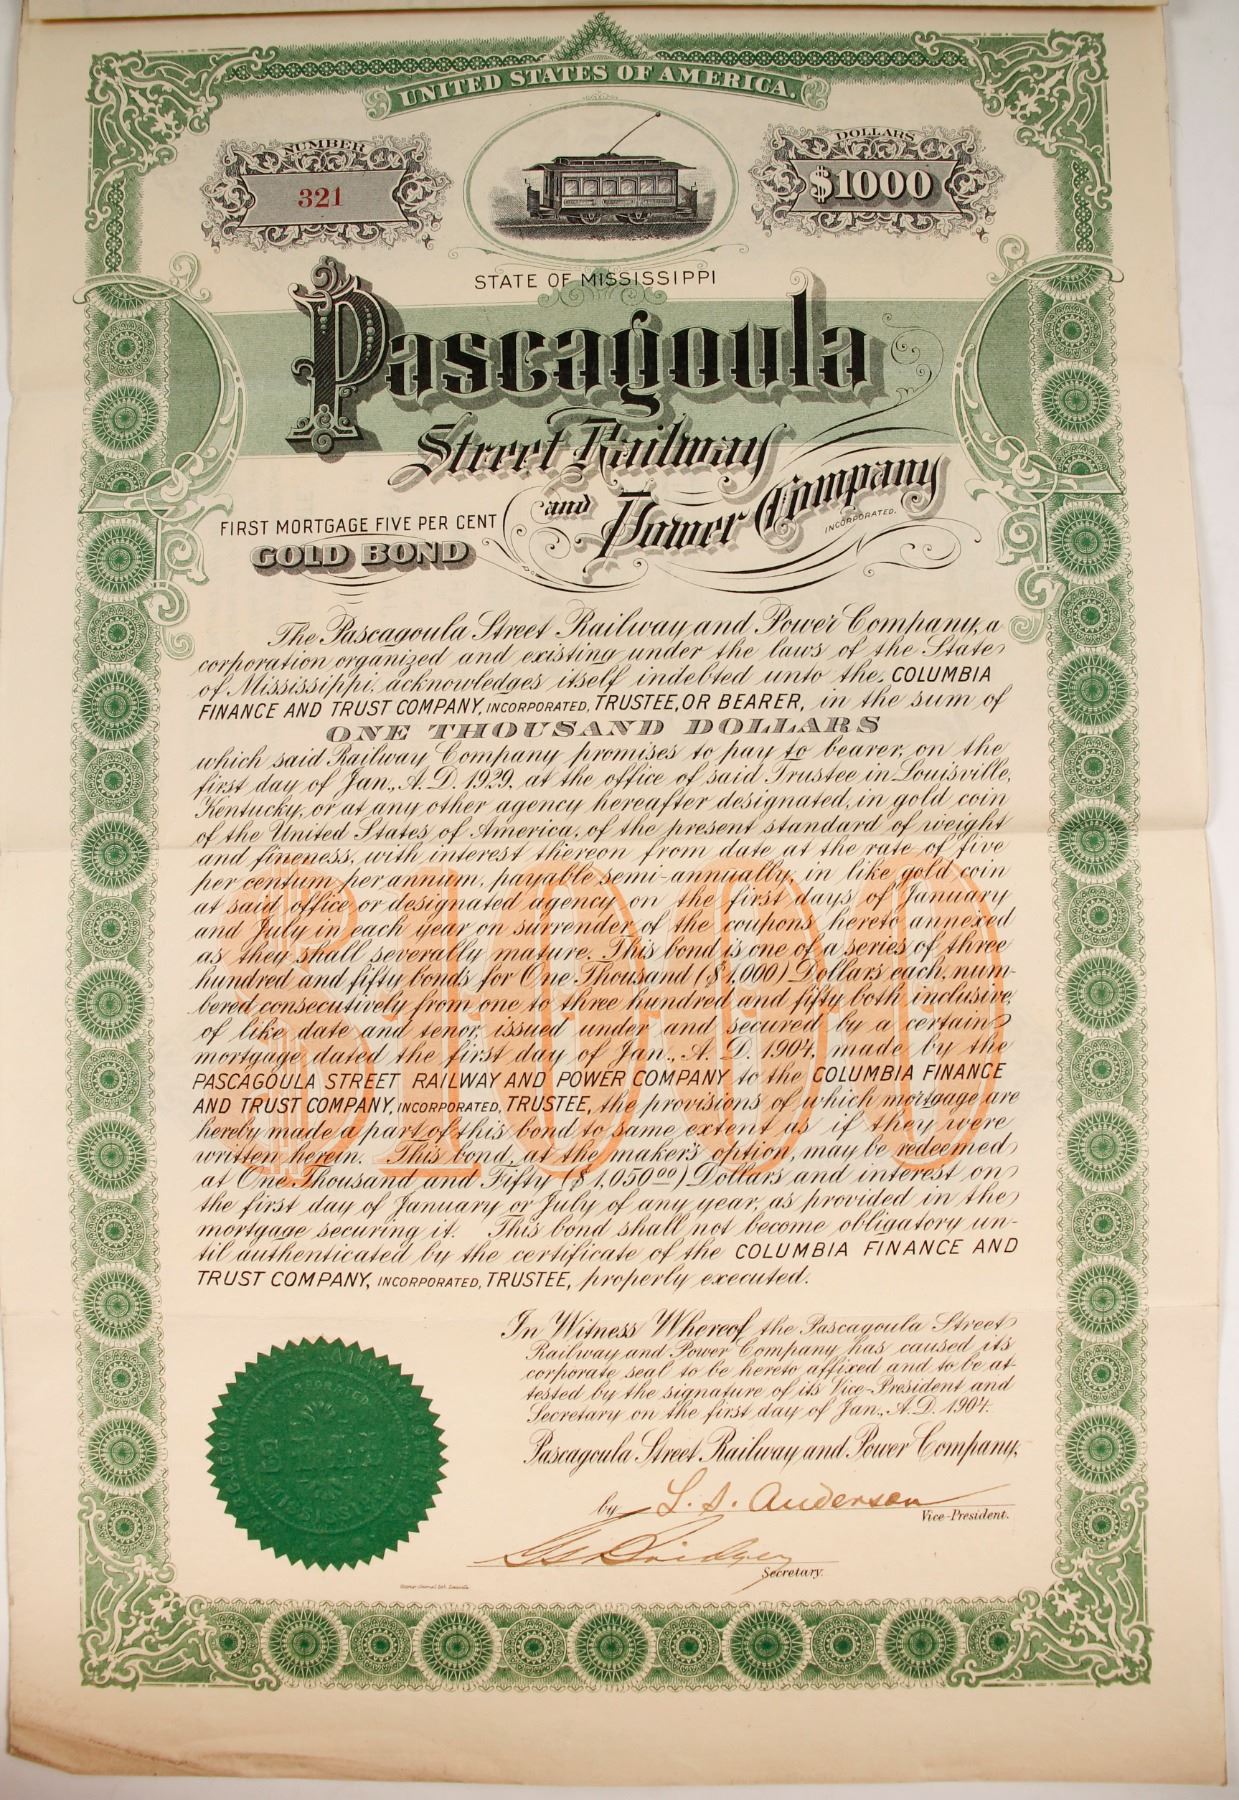 UNITED STATES OF AMERICA.
NUMBER
321
DOLLARS
$1000
STATE OF MISSISSIPPI
Pascagoula
Street Railway
and Power Company
INCORPORATED.
FIRST MORTGAGE FIVE PER CENT
GOLD BOND
The Pascagoula Street Railway and Power Company, a
corporation organized and existing under the laws of the State
of Mississippi, acknowledges itself indebted unto the COLUMBIA
FINANCE AND TRUST COMPANY, INCORPORATED, TRUSTEE, OR BEARER, in the sum of
ONE THOUSAND DOLLARS
which said Railway Company promises to pay to bearer, on the
first day of Jan., A.D. 1929, at the office of said Trustee in Louisville,
Kentucky, or at any other agency hereafter designated, in gold coin
of the United States of America, of the present standard of weight
and fineness, with interest thereon from date at the rate of five
per centum per annum, payable semi-annually, in like gold coin
at said office or designated agency on the first days of January
and July in each year on surrender of the coupons hereto annexed
as they shall severally mature. This bond is one of a series of three
hundred and fifty bonds for One Thousand ($1,000) Dollars each, num-
bered consecutively from one to three hundred and fifty both inclusive,
of like date and tenor, issued under and secured by a certain
mortgage dated the first day of Jan., A. D. 1904, made by the
PASCAGOULA STREET RAILWAY AND POWER COMPANY to the COLUMBIA FINANCE
AND TRUST COMPANY, INCORPORATED, TRUSTEE, the provisions of which mortgage are
hereby made a part of this bond to same extent as if they were
written herein. This bond, at the maker's option, may be redeemed
at One Thousand and Fifty ($1,050 00) Dollars and interest on
the first day of January or July of any year, as provided in the
mortgage securing it. This bond shall not become obligatory un-
til authenticated by the certificate of the COLUMBIA FINANCE AND
TRUST COMPANY, INCORPORATED, TRUSTEE, properly executed.
$1000
In Witness Whereof the Pascagoula Street
Railway and Power Company has caused its
corporate seal to be hereto affixed and to be at-
tested by the signature of its Vice-President and
Secretary on the first day of Jan., A.D. 1904.
Pascagoula Street Railway and Power Company,
by L. S. Anderson
Vice-President.
Secretary.